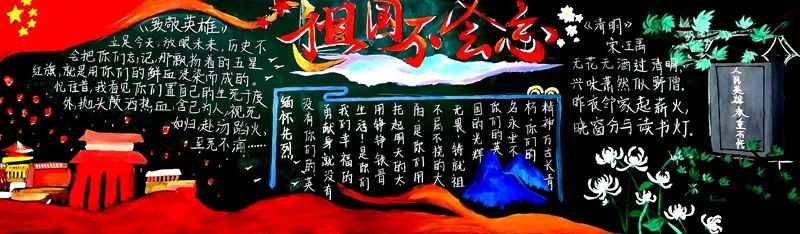 祖国不会忘
《致敬英雄》
立足今天,放眼未来,历史不
会把你们忘记,那飘扬着的五星
红旗,就是用你们的鲜血浸染而成的。
忆往昔,我看见你们置自己的生死于度
外,抛头颅洒热血,舍己为人,视死
如归,赴汤蹈火,
至死不渝……
缅怀先烈
没有你们的英
勇献身就没有
我们幸福的
生活!是你们
用铮铮铁骨
托起明天的太
阳是你们用
不屈不挠的大
无畏,铸就祖
国的光辉
你们的英
名永垂不
朽你们的
精神万古长青
《清明》
宋·王禹
无花无酒过清明,
兴味萧然似野僧。
昨夜邻家起新火,
晓窗分与读书灯。
人民英雄永垂不朽